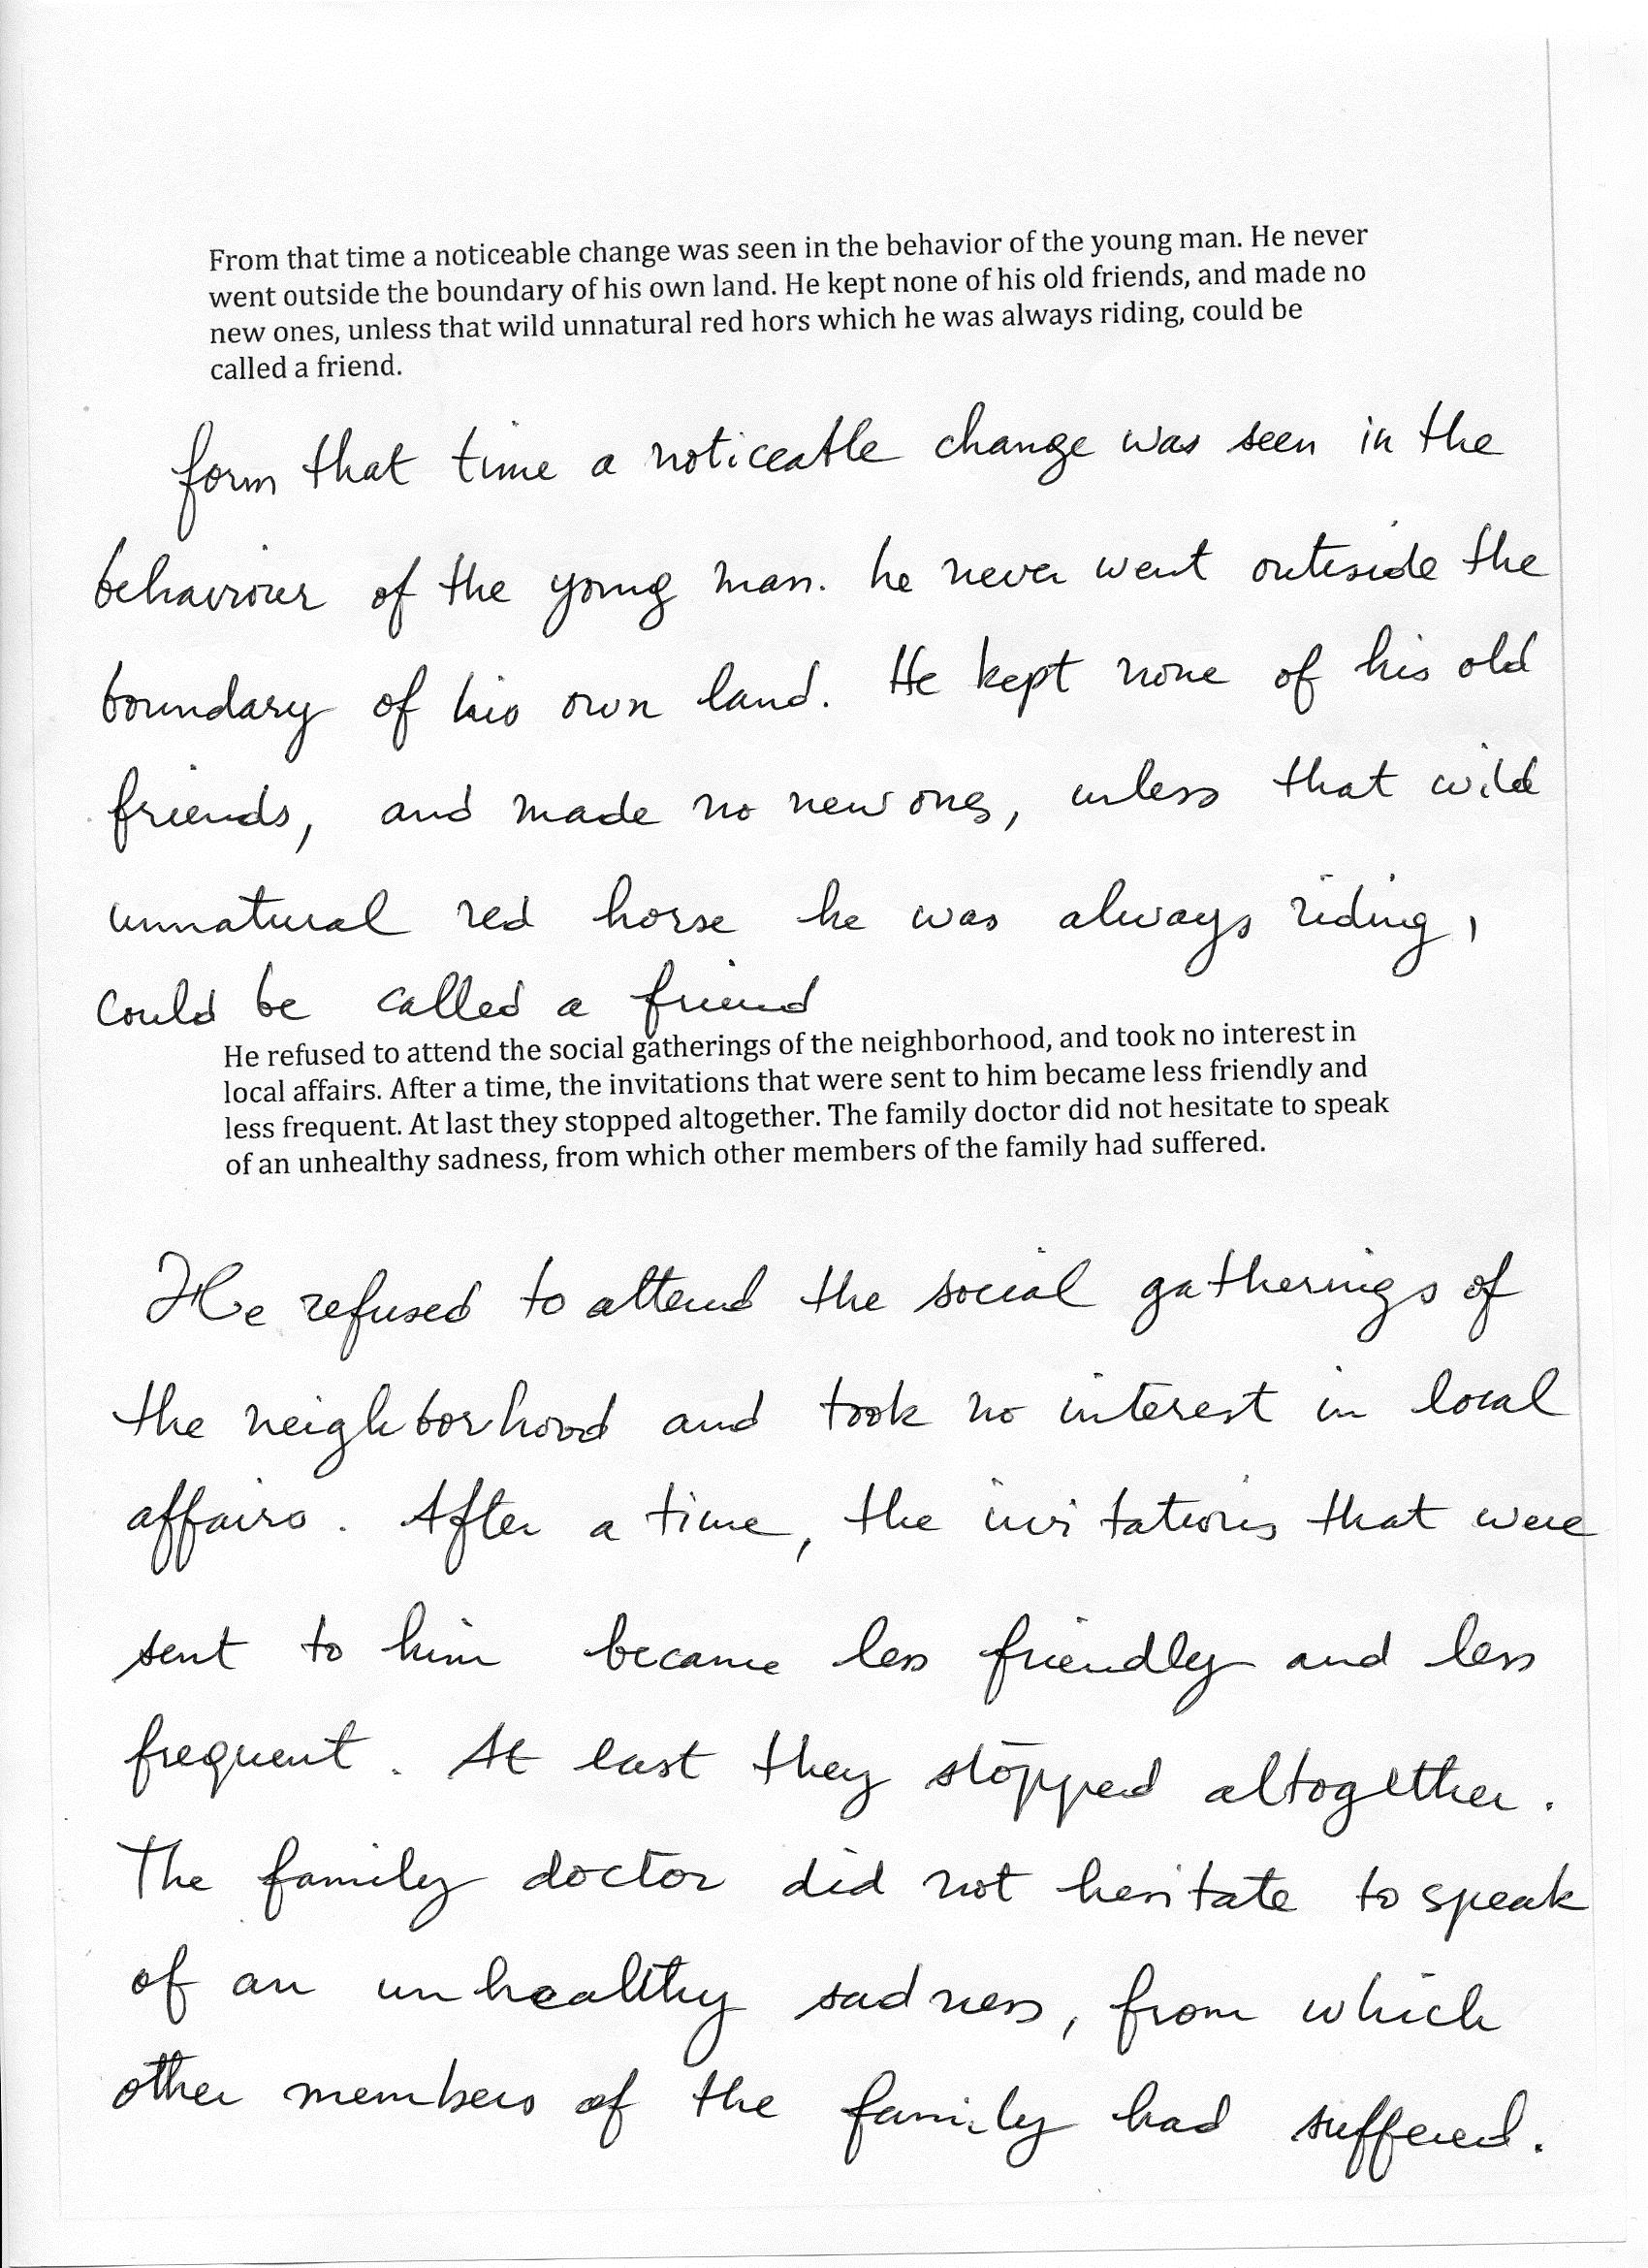 From that time a noticeable change was seen in the behavior of the young man. He never
went outside the boundary of his own land. He kept none of his old friends, and made no
new ones, unless that wild unnatural red hors which he was always riding, could be
called a friend.
form that time a noticeable change was seen in the
behaviour of the young man. he never went outside the
boundary of his own land. He kept none of his old
friends, and made no new ones, unless that wild
unnatural red horse he was always riding,
could be called a friend
He refused to attend the social gatherings of the neighborhood, and took no interest in
local affairs. After a time, the invitations that were sent to him became less friendly and
less frequent. At last they stopped altogether. The family doctor did not hesitate to speak
of an unhealthy sadness, from which other members of the family had suffered.
He refused to attend the social gatherings of
the neighborhood and took no interest in local
affairs. After a time, the invitations that were
sent to him became less friendly and less
frequent. At last they stopped altogether.
The family doctor did not hesitate to speak
of an unhealthy sadness, from which
other members of the family had suffered.